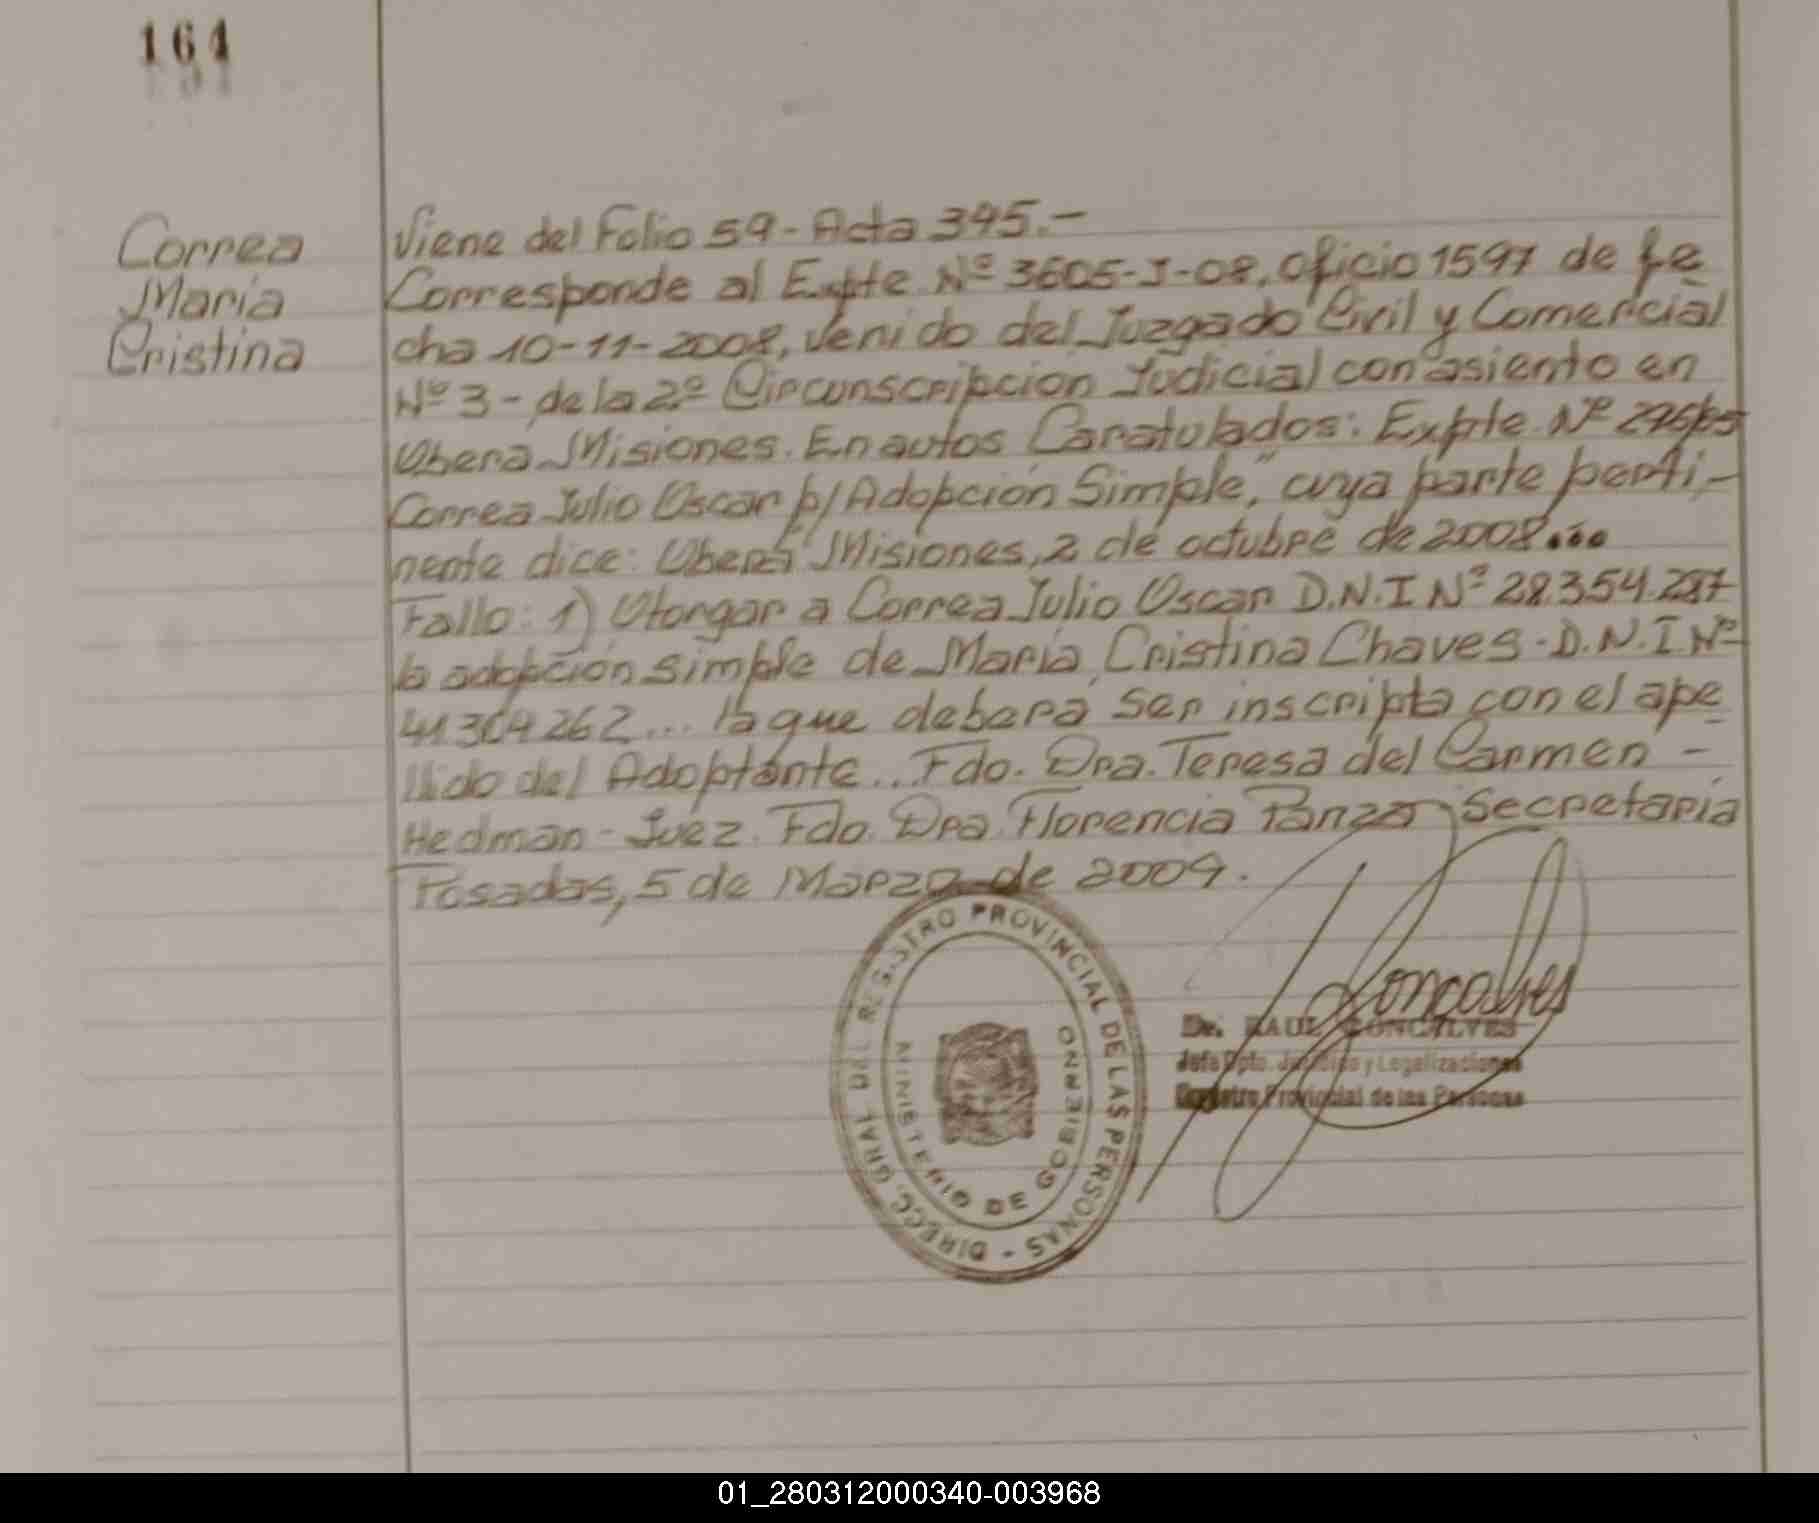 164
Correa
María
Cristina
Viene del Folio 59 - Acta 395.-
Corresponde al Expte Nº 3605-J-08, Oficio 1597 de fe
cha 10-11-2008, venido del Juzgado Civil y Comercial
Nº 3 - de la 2º Circunscripcion Judicial con asiento en
Obera Misiones. En autos Caratulados: Expte Nº
Correa Julio Oscar p/ Adopción Simple", cuya parte perti-
nente dice: Oberá Misiones, 2 de octubre de 2008...
Fallo: 1) Otorgar a Correa Julio Oscar D.N.I Nº 28.354.287
la adopción simple de María Cristina Chaves - D.N.I Nº
41304262... la que debera ser inscripta con el ape
llido del Adoptante... Fdo. Dra. Teresa del Carmen -
Hedman - Juez. Fdo. Dra. Florencia Panza Secretaria
Posadas, 5 de Marzo de 2009.
DIRECC. GRAL DEL REGISTRO PROVINCIAL DE LAS PERSONAS -
MINISTERIO DE GOBIERNO
Goncalves
Dr. RAUL GONCALVES
Jefe Dpto. Jurídico y Legalizaciones
Registro Provincial de las Personas
01_280312000340-003968